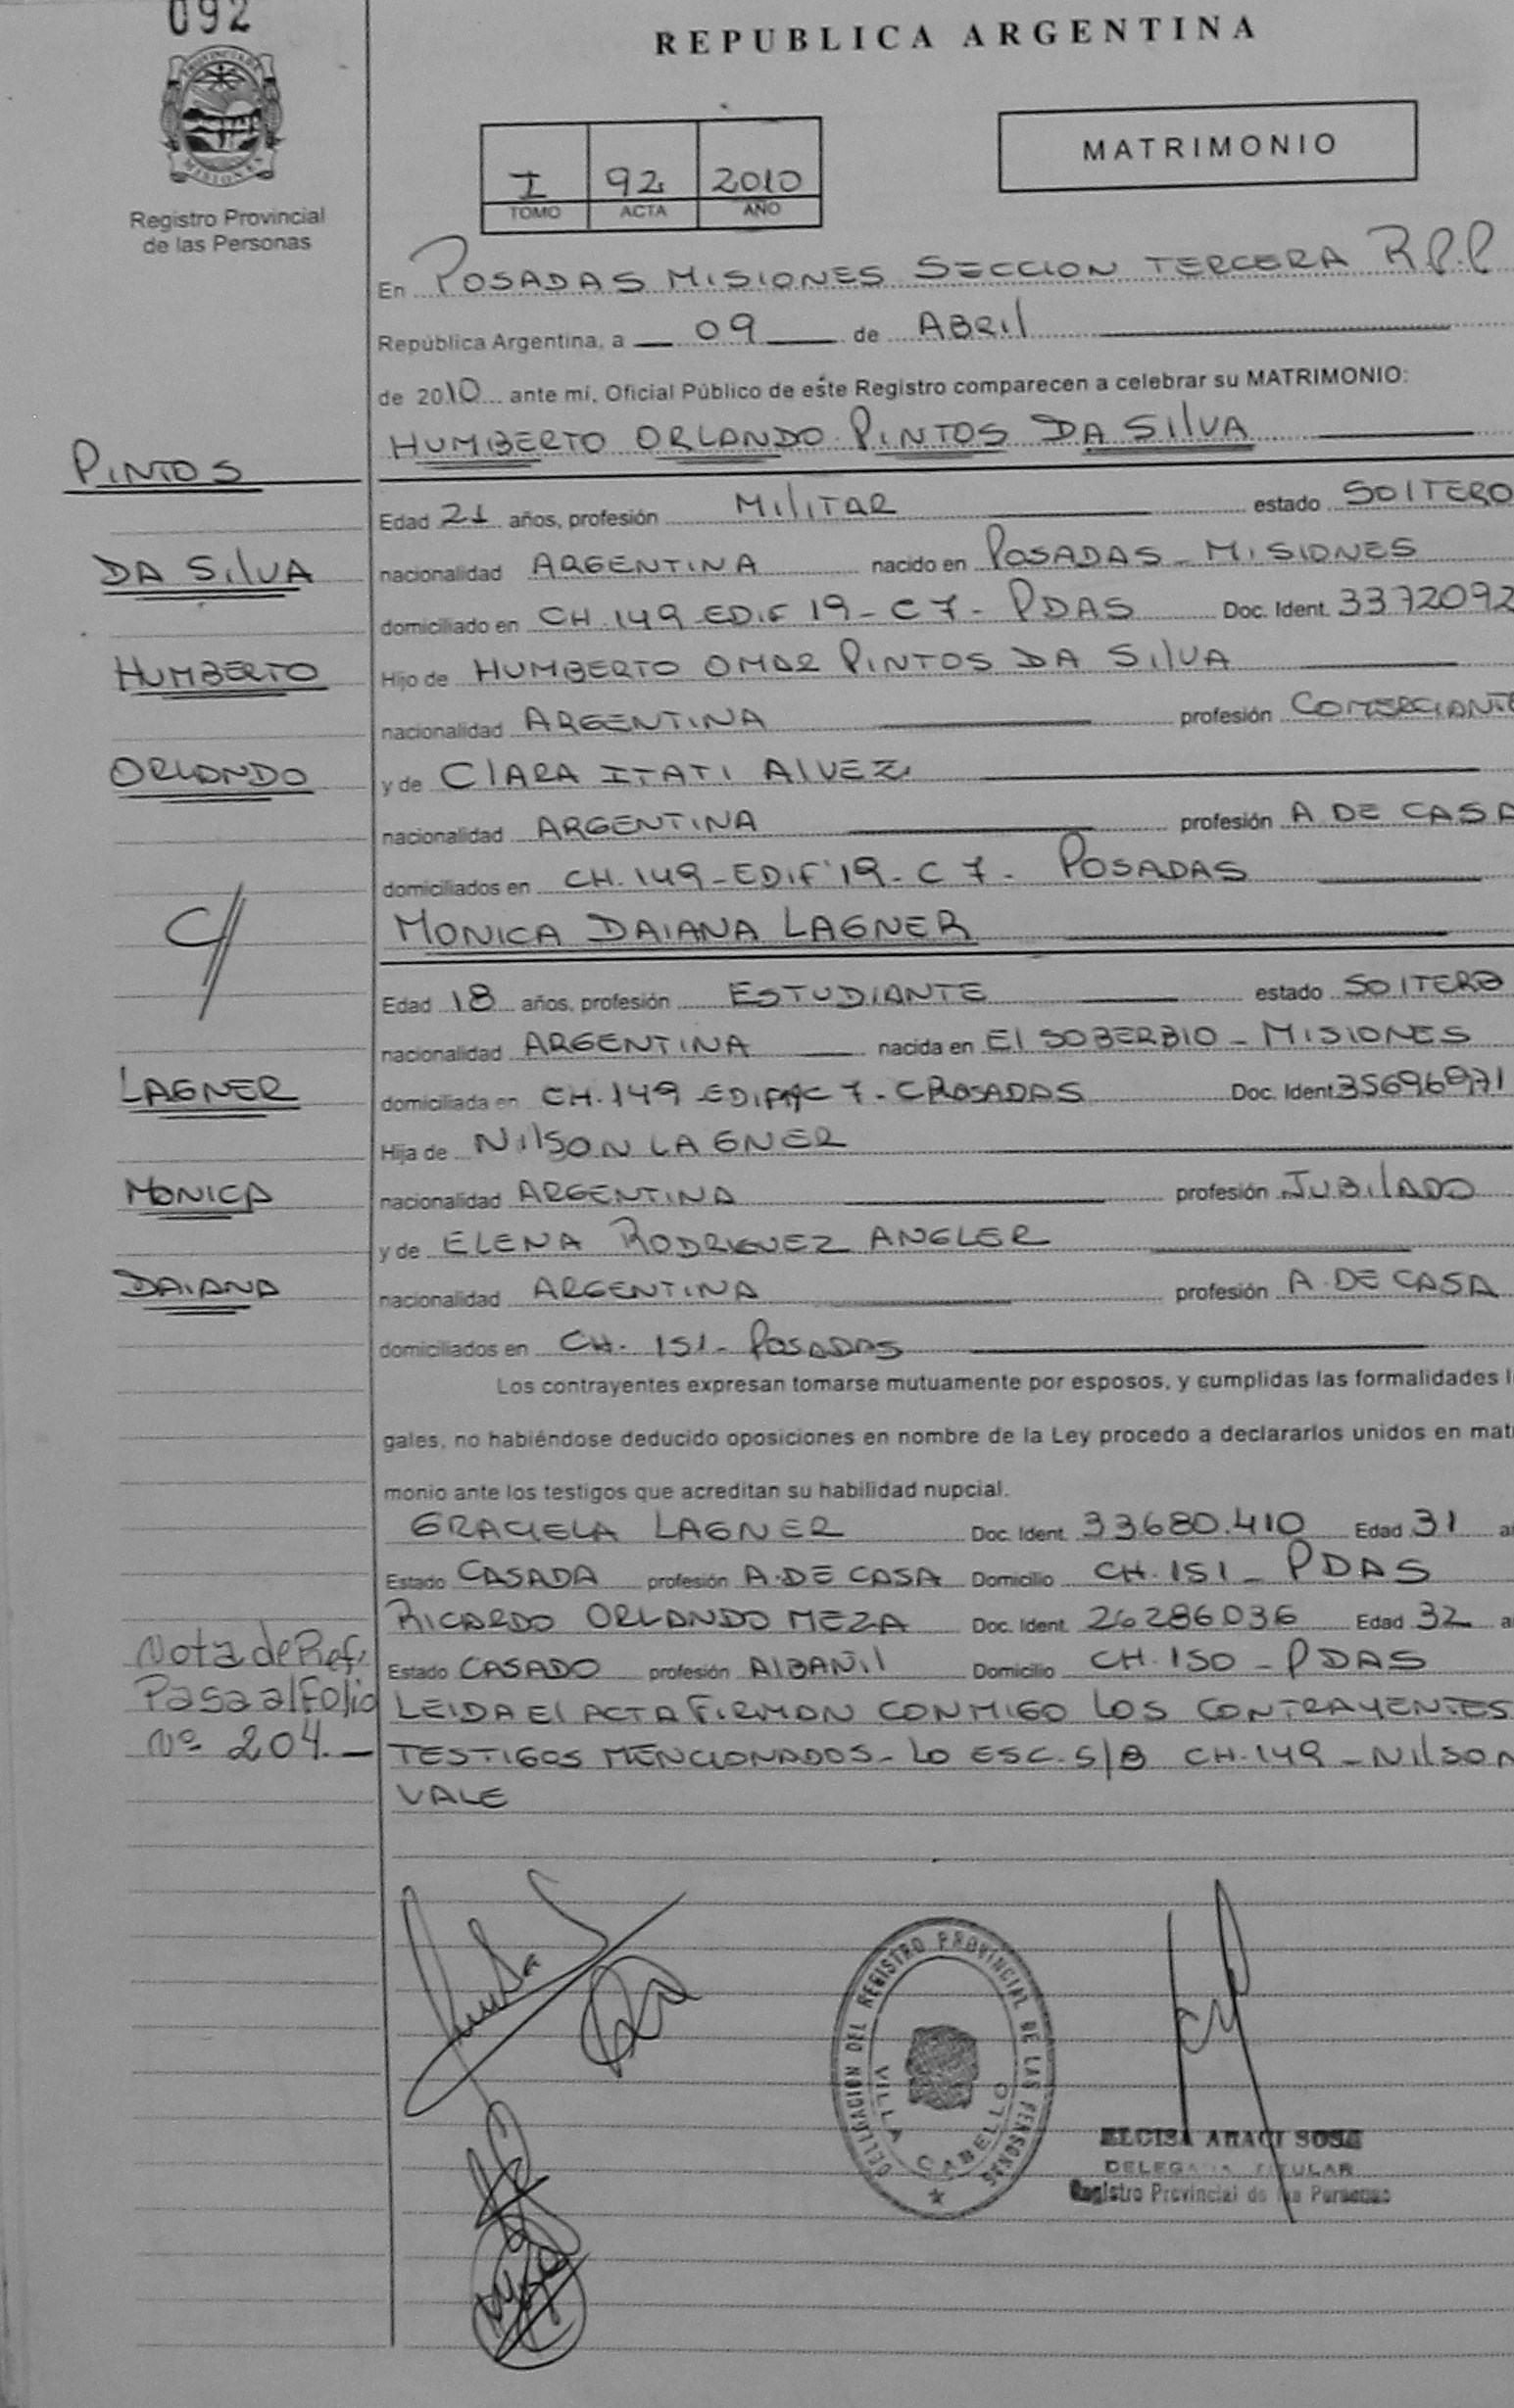 092
REPUBLICA ARGENTINA
PROVINCIA DE
MISIONES
Registro Provincial
de las Personas
I 92 2010
TOMO ACTA AÑO
MATRIMONIO
En POSADAS MISIONES SECCION TERCERA R.P.P
República Argentina, a 09 de ABRIL
de 2010 ante mí, Oficial Público de este Registro comparecen a celebrar su MATRIMONIO:
HUMBERTO ORLANDO PINTOS DA SILVA
PINTOS
Edad 21 años, profesión MILITAR estado SOLTERO
DA SILVA
nacionalidad ARGENTINA nacido en POSADAS - MISIONES
domiciliado en CH.149 EDIF 19 - C 7 - PDAS Doc. Ident. 3372092
HUMBERTO
Hijo de HUMBERTO OMAR PINTOS DA SILVA
nacionalidad ARGENTINA profesión COMERCIANTE
ORLANDO
y de CLARA ITATI ALVEZ
nacionalidad ARGENTINA profesión A DE CASA
domiciliados en CH.149 - EDIF 19 - C 7 - POSADAS
C//
MONICA DAIANA LAGNER
Edad 18 años, profesión ESTUDIANTE estado SOLTERA
nacionalidad ARGENTINA nacida en El SOBERBIO - MISIONES
LAGNER
domiciliada en CH.149 C 7 - POSADAS Doc. Ident. 35696971
Hija de NILSON LAGNER
MONICA
nacionalidad ARGENTINA profesión JUBILADO
y de ELENA RODRIGUEZ ANGLER
DAIANA
nacionalidad ARGENTINA profesión A. DE CASA
domiciliados en CH. 151 - POSADAS
Los contrayentes expresan tomarse mutuamente por esposos, y cumplidas las formalidades l
gales, no habiéndose deducido oposiciones en nombre de la Ley procedo a declararlos unidos en mat
monio ante los testigos que acreditan su habilidad nupcial.
GRACIELA LAGNER Doc. Ident. 33680.410 Edad 31 a
Estado CASADA profesión A. DE CASA Domicilio CH.151 - PDAS
RICARDO ORLANDO MEZA Doc. Ident. 26286036 Edad 32 a
Estado CASADO profesión ALBAÑIL Domicilio CH.150 - PDAS
Nota de Ref.
Pasa al Folio
Nº 204.
LEIDA El ACTA FIRMAN CONMIGO LOS CONTRAYENTES
TESTIGOS MENCIONADOS - LO ESC. S/B CH.149 - NILSON
VALE
DELEGACION DEL REGISTRO PROVINCIAL DE LAS PERSONAS
VILLA CABELLO
ARACI SOSA
DELEGADA TITULAR
Registro Provincial de las Personas